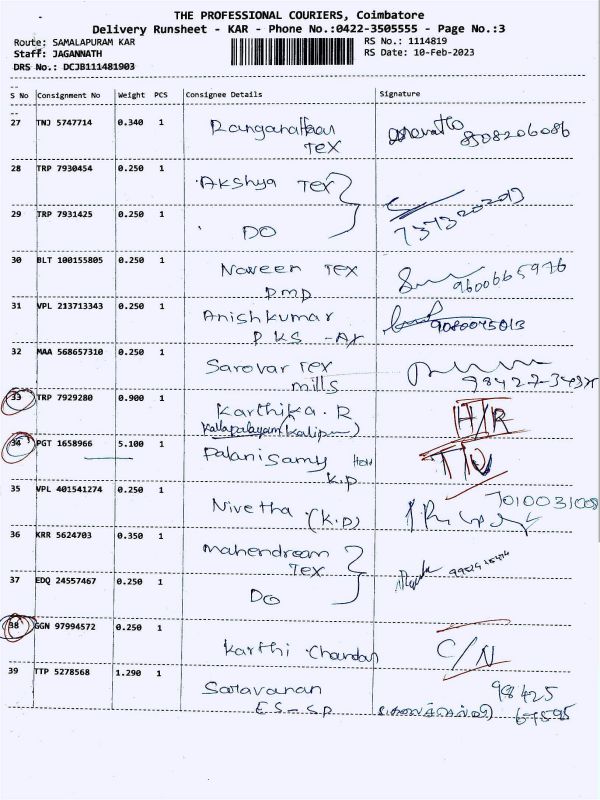 THE PROFESSIONAL COURIERS, Coimbatore
Delivery Runsheet - KAR - Phone No.:0422-3505555 - Page No.:3
Route: SAMALAPURAM KAR RS No.: 1114819
Staff: JAGANNATH RS Date: 10-Feb-2023
DRS No.: DCJB111481903
S No Consignment No Weight PCS Consignee Details Signature
27 TNJ 5747714 0.340 1 Ranganathan
Tex
8508206086
28 TRP 7930454 0.250 1 Akshya Tex
29 TRP 7931425 0.250 1 DO
7373202013
30 BLT 100155805 0.250 1 Naveen Tex
P.M.P 9600665976
31 VPL 213713343 0.250 1 Anishkumar
P KS - 9080045013
32 MAA 568657310 0.250 1 Sarovar Tex
mills
33 TRP 7929280 0.900 1 Karthika.R H/R
Kallapalayam (Kalipu)
34 PGT 1658966 5.100 1 Palanisamy
K.P
35 VPL 401541274 0.250 1 Nivetha.(K.P) 7010031008
36 KRR 5624703 0.350 1 Mahendream
Tex
37 EDQ 24557467 0.250 1 DO
38 GGN 97994572 0.250 1 Karthi Chandan C/N
39 TTP 5278568 1.290 1 Saravanan 98425
ES-SP 67595